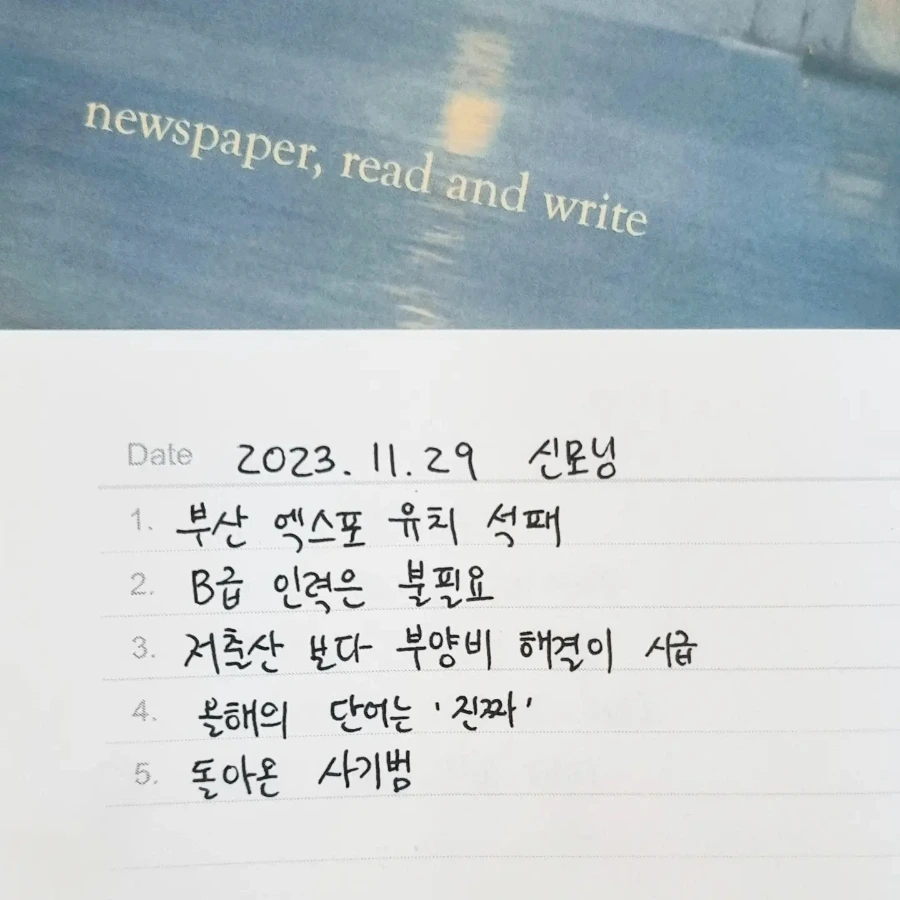 newspaper, read and write
Date 2023.11.29 신모닝
1. 부산 엑스포 유치 석패
2. B급 인력은 불필요
3. 저출산 보다 부양비 해결이 시급
4. 올해의 단어는 '진짜'
5. 돌아온 사기범